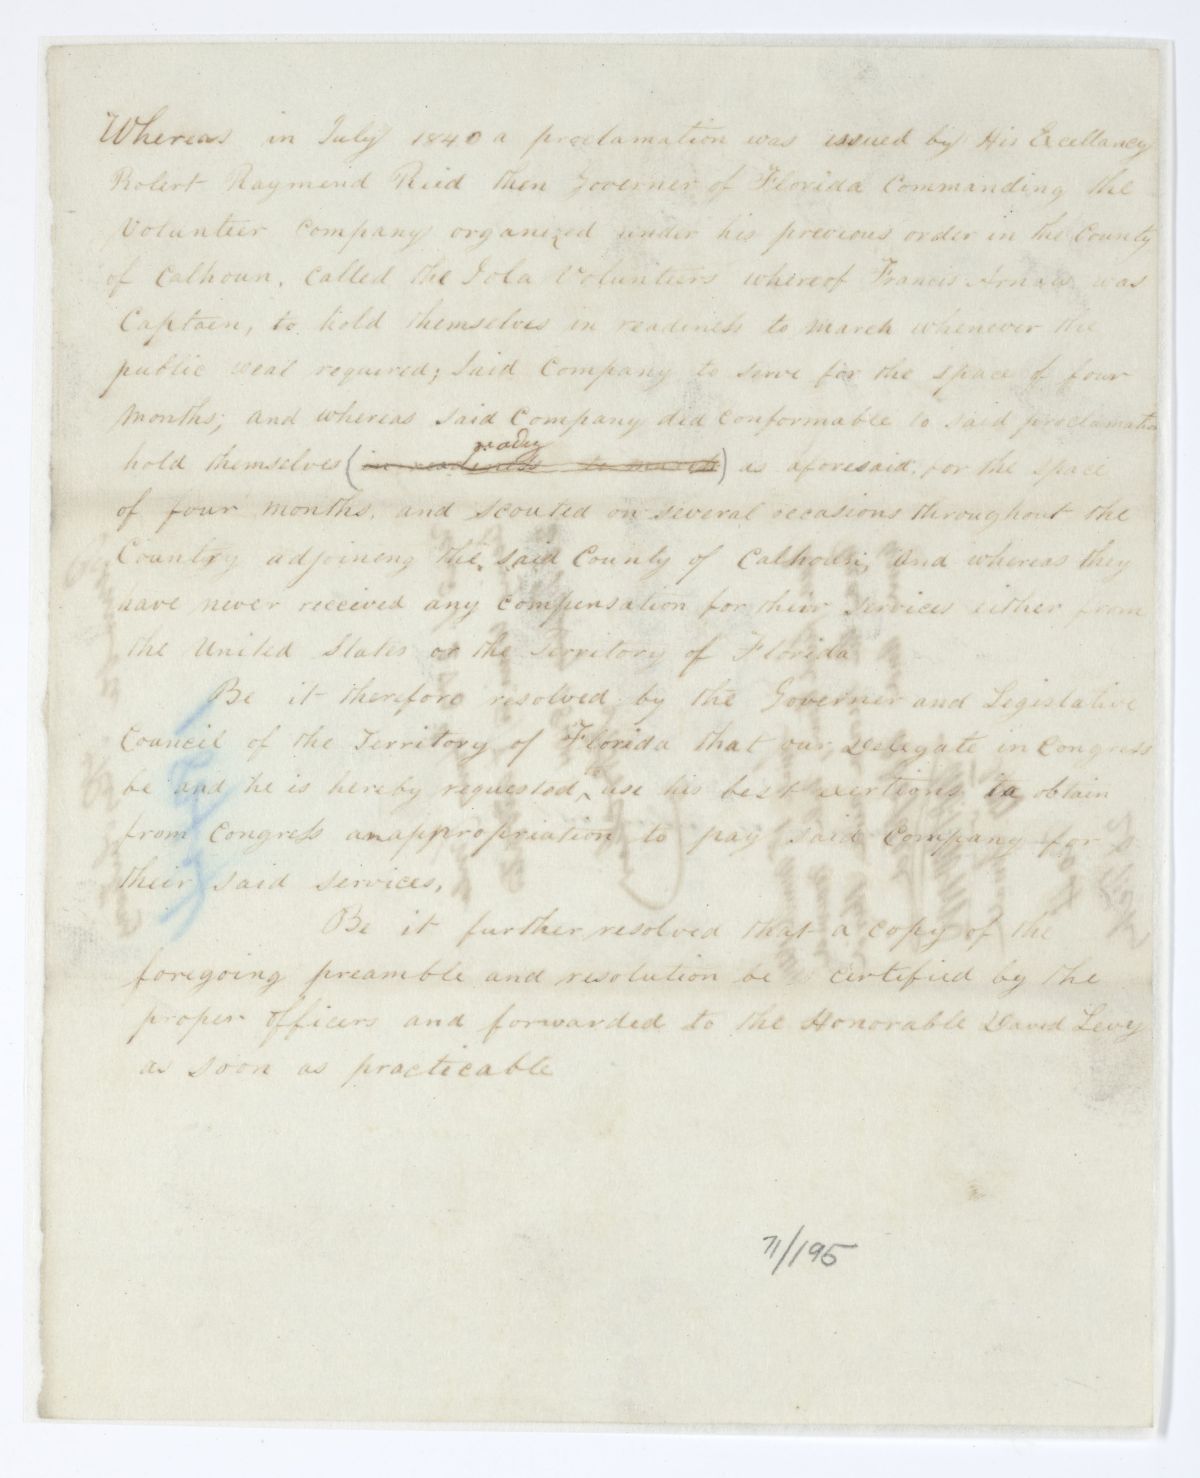 Whereas in July 1840 a proclamation was issued by His Excellancy
Robert Raymend Ried then Governer of Florida Commanding the
Volunteer Company organized under his previous order in the County
of Calhoun, Called the Iola Volunteers whereof Francis Arnau was
Captain, to hold themselves in readiness to march whenever the
public weal required; Said Company to serve for the space of four
Months; and whereas said Company did Conformable to said proclamation
ready
hold themselves (in readiness to march) as aforesaid, for the space
of four months, and scouted on several occasions throughout the
Country adjoineng the said County of Calhoun; And whereas they
have never received any compensation for their services either from
the United States or the Territory of Florida
Be it therefore resolved by the Governer and Legislative
Council of the Territory of Florida that our Delegate in Congress
be and he is hereby requested to use his best exertions to obtain
from Congress an appropriation to pay said Company for
their said services,
Be it further resolved that a copy of the
foregoing preamble and resolution be certified by the
proper officers and forwarded to the Honorable David Levy
as soon as practicable
71/195